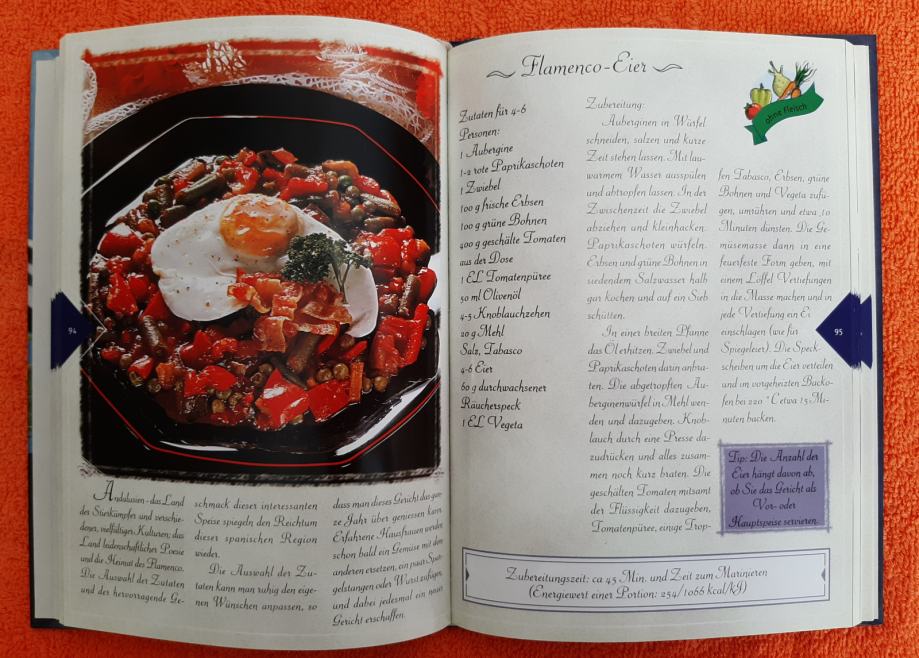 94
Andalusien - das Land
der Stierkämpfer und verschie-
dener, vielfältiger Kulturen; das
Land leidenschaftlicher Poesie
und die Heimat des Flamenco.
Die Auswahl der Zutaten
und der hervorragende Ge-
schmack dieser interessanten
Speise spiegeln den Reichtum
dieser spanischen Region
wieder.
Die Auswahl der Zu-
taten kann man ruhig den eige-
nen Wünschen anpassen, so
dass man dieses Gericht das gan-
ze Jahr über geniessen kann.
Erfahrene Hausfrauen werden
schon bald ein Gemüse mit dem
anderen ersetzen, ein paar Spar-
gelstangen oder Wurst zufügen,
und dabei jedesmal ein neues
Gericht erschaffen.
Flamenco-Eier
ohne Fleisch
Zutaten für 4-6
Personen:
1 Aubergine
1-2 rote Paprikaschoten
1 Zwiebel
100 g frische Erbsen
100 g grüne Bohnen
400 g geschälte Tomaten
aus der Dose
1 EL Tomatenpüree
50 ml Olivenöl
4-5 Knoblauchzehen
20 g Mehl
Salz, Tabasco
4-6 Eier
60 g durchwachsener
Räucherspeck
1 EL Vegeta
Zubereitung:
Auberginen in Würfel
schneiden, salzen und kurze
Zeit stehen lassen. Mit lau-
warmem Wasser ausspülen
und abtropfen lassen. In der
Zwischenzeit die Zwiebel
abziehen und kleinhacken.
Paprikaschoten würfeln.
Erbsen und grüne Bohnen in
siedendem Salzwasser halb
gar kochen und auf ein Sieb
schütten.
In einer breiten Pfanne
das Öl erhitzen. Zwiebel und
Paprikaschoten darin anbra-
ten. Die abgetropften Au-
berginenwürfel in Mehl wen-
den und dazugeben. Knob-
lauch durch eine Presse da-
zudrücken und alles zusam-
men noch kurz braten. Die
geschälten Tomaten mitsamt
der Flüssigkeit dazugeben,
Tomatenpüree, einige Trop-
fen Tabasco, Erbsen, grüne
Bohnen und Vegeta zufü-
gen, umrühren und etwa 10
Minuten dünsten. Die Ge-
müsemasse dann in eine
feuerfeste Form geben, mit
einem Löffel Vertiefungen
in die Masse machen und in
jede Vertiefung ein Ei
einschlagen (wie für
Spiegeleier). Die Speck-
scheiben um die Eier verteilen
und im vorgeheizten Backo-
fen bei 220 °C etwa 15 Mi-
nuten backen.
95
Tip: Die Anzahl der
Eier hängt davon ab,
ob Sie das Gericht als
Vor- oder
Hauptspeise servieren.
Zubereitungszeit: ca 45 Min. und Zeit zum Marinieren
(Energiewert einer Portion: 254/1066 kcal/kJ)